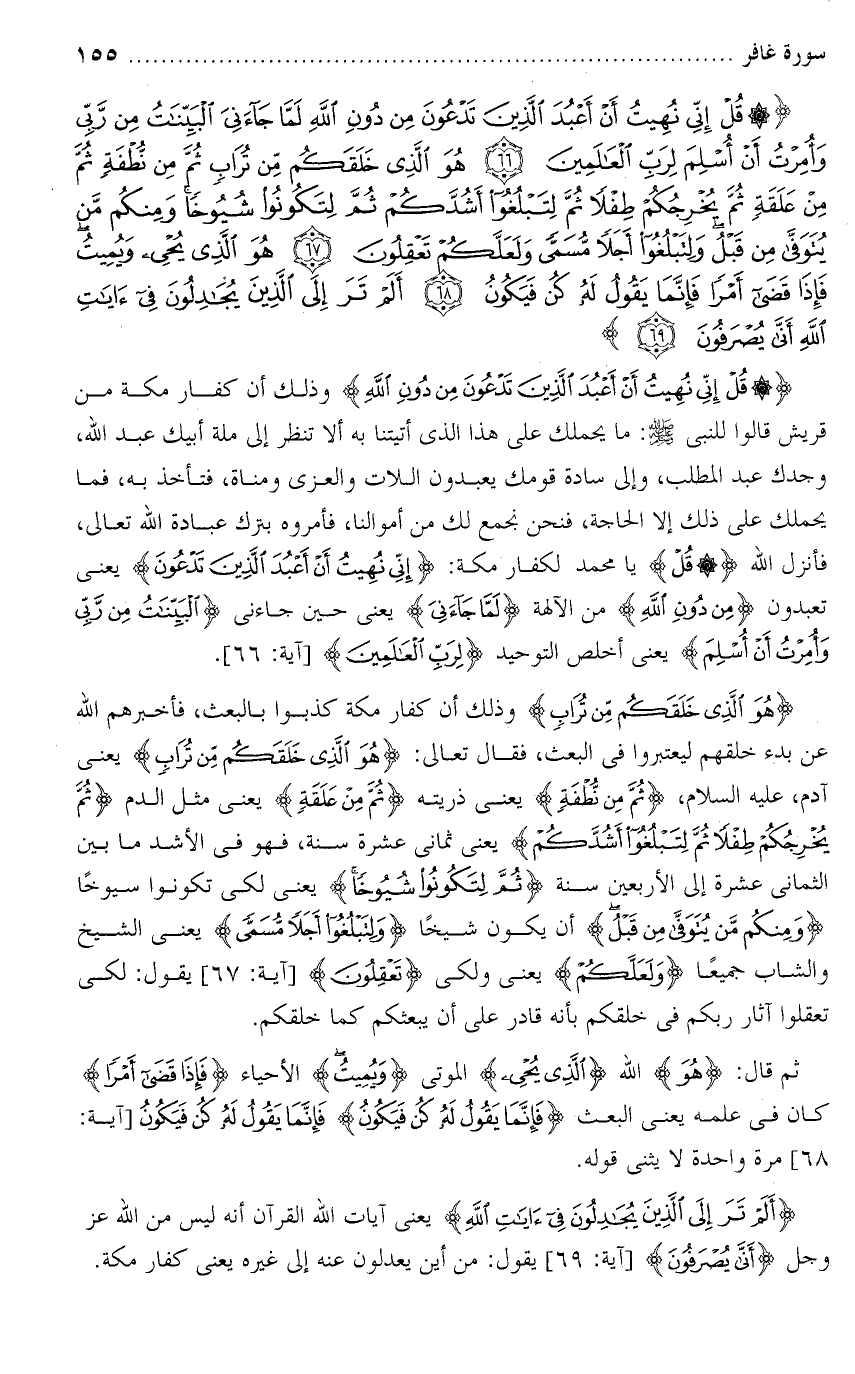 سورة غافر ........................................................................ ١٥٥
﴿۞ قُلْ إِنِّي نُهِيتُ أَنْ أَعْبُدَ ٱلَّذِينَ تَدْعُونَ مِن دُونِ ٱللَّهِ لَمَّا جَآءَنِيَ ٱلْبَيِّنَٰتُ مِن رَّبِّي
وَأُمِرْتُ أَنْ أُسْلِمَ لِرَبِّ ٱلْعَٰلَمِينَ ٦٦ هُوَ ٱلَّذِى خَلَقَكُم مِّن تُرَابٍ ثُمَّ مِن نُّطْفَةٍ ثُمَّ
مِنْ عَلَقَةٍ ثُمَّ يُخْرِجُكُمْ طِفْلًا ثُمَّ لِتَبْلُغُوٓا۟ أَشُدَّكُمْ ثُمَّ لِتَكُونُوا۟ شُيُوخًا ۚ وَمِنكُم مَّن
يُتَوَفَّىٰ مِن قَبْلُ ۖ وَلِتَبْلُغُوٓا۟ أَجَلًا مُّسَمًّى وَلَعَلَّكُمْ تَعْقِلُونَ ٦٧ هُوَ ٱلَّذِى يُحْىِۦ وَيُمِيتُ ۖ
فَإِذَا قَضَىٰٓ أَمْرًا فَإِنَّمَا يَقُولُ لَهُۥ كُن فَيَكُونُ ٦٨ أَلَمْ تَرَ إِلَى ٱلَّذِينَ يُجَٰدِلُونَ فِىٓ ءَايَٰتِ
ٱللَّهِ أَنَّىٰ يُصْرَفُونَ ٦٩ ﴾
﴿۞ قُلْ إِنِّي نُهِيتُ أَنْ أَعْبُدَ ٱلَّذِينَ تَدْعُونَ مِن دُونِ ٱللَّهِ﴾ وذلك أن كفار مكة من
قريش قالوا للنبى ﷺ: ما يحملك على هذا الذى أتيتنا به ألا تنظر إلى ملة أبيك عبد الله،
وجدك عبد المطلب، وإلى سادة قومك يعبدون اللات والعزى ومناة، فتأخذ به، فما
يحملك على ذلك إلا الحاجة، فنحن نجمع لك من أموالنا، فأمروه بترك عبادة الله تعالى،
فأنزل الله ﴿۞ قُلْ﴾ يا محمد لكفار مكة: ﴿إِنِّي نُهِيتُ أَنْ أَعْبُدَ ٱلَّذِينَ تَدْعُونَ﴾ يعنى
تعبدون ﴿مِن دُونِ ٱللَّهِ﴾ من الآلهة ﴿لَمَّا جَآءَنِيَ﴾ يعنى حين جاءنى ﴿ٱلْبَيِّنَٰتُ مِن رَّبِّي
وَأُمِرْتُ أَنْ أُسْلِمَ﴾ يعنى أخلص التوحيد ﴿لِرَبِّ ٱلْعَٰلَمِينَ﴾ [آية: ٦٦].
﴿هُوَ ٱلَّذِى خَلَقَكُم مِّن تُرَابٍ﴾ وذلك أن كفار مكة كذبوا بالبعث، فأخبرهم الله
عن بدء خلقهم ليعتبروا فى البعث، فقال تعالى: ﴿هُوَ ٱلَّذِى خَلَقَكُم مِّن تُرَابٍ﴾ يعنى
آدم، عليه السلام، ﴿ثُمَّ مِن نُّطْفَةٍ﴾ يعنى ذريته ﴿ثُمَّ مِنْ عَلَقَةٍ﴾ يعنى مثل الدم ﴿ثُمَّ
يُخْرِجُكُمْ طِفْلًا ثُمَّ لِتَبْلُغُوٓا۟ أَشُدَّكُمْ﴾ يعنى ثمانى عشرة سنة، فهو فى الأشد ما بين
الثمانى عشرة إلى الأربعين سنة ﴿ثُمَّ لِتَكُونُوا۟ شُيُوخًا ۚ﴾ يعنى لكى تكونوا سيوخًا
﴿وَمِنكُم مَّن يُتَوَفَّىٰ مِن قَبْلُ ۖ﴾ أن يكون شيخًا ﴿وَلِتَبْلُغُوٓا۟ أَجَلًا مُّسَمًّى﴾ يعنى الشيخ
والشاب جميعًا ﴿وَلَعَلَّكُمْ﴾ يعنى ولكى ﴿تَعْقِلُونَ﴾ [آية: ٦٧] يقول: لكى
تعقلوا آثار ربكم فى خلقكم بأنه قادر على أن يبعثكم كما خلقكم.
ثم قال: ﴿هُوَ﴾ الله ﴿ٱلَّذِى يُحْىِۦ﴾ الموتى ﴿وَيُمِيتُ ۖ﴾ الأحياء ﴿فَإِذَا قَضَىٰٓ أَمْرًا﴾
كان فى علمه يعنى البعث ﴿فَإِنَّمَا يَقُولُ لَهُۥ كُن فَيَكُونُ﴾ فَإِنَّمَا يَقُولُ لَهُۥ كُن فَيَكُونُ [آية:
٦٨] مرة واحدة لا يثنى قوله.
﴿أَلَمْ تَرَ إِلَى ٱلَّذِينَ يُجَٰدِلُونَ فِىٓ ءَايَٰتِ ٱللَّهِ﴾ يعنى آيات الله القرآن أنه ليس من الله عز
وجل ﴿أَنَّىٰ يُصْرَفُونَ﴾ [آية: ٦٩] يقول: من أين يعدلون عنه إلى غيره يعنى كفار مكة.